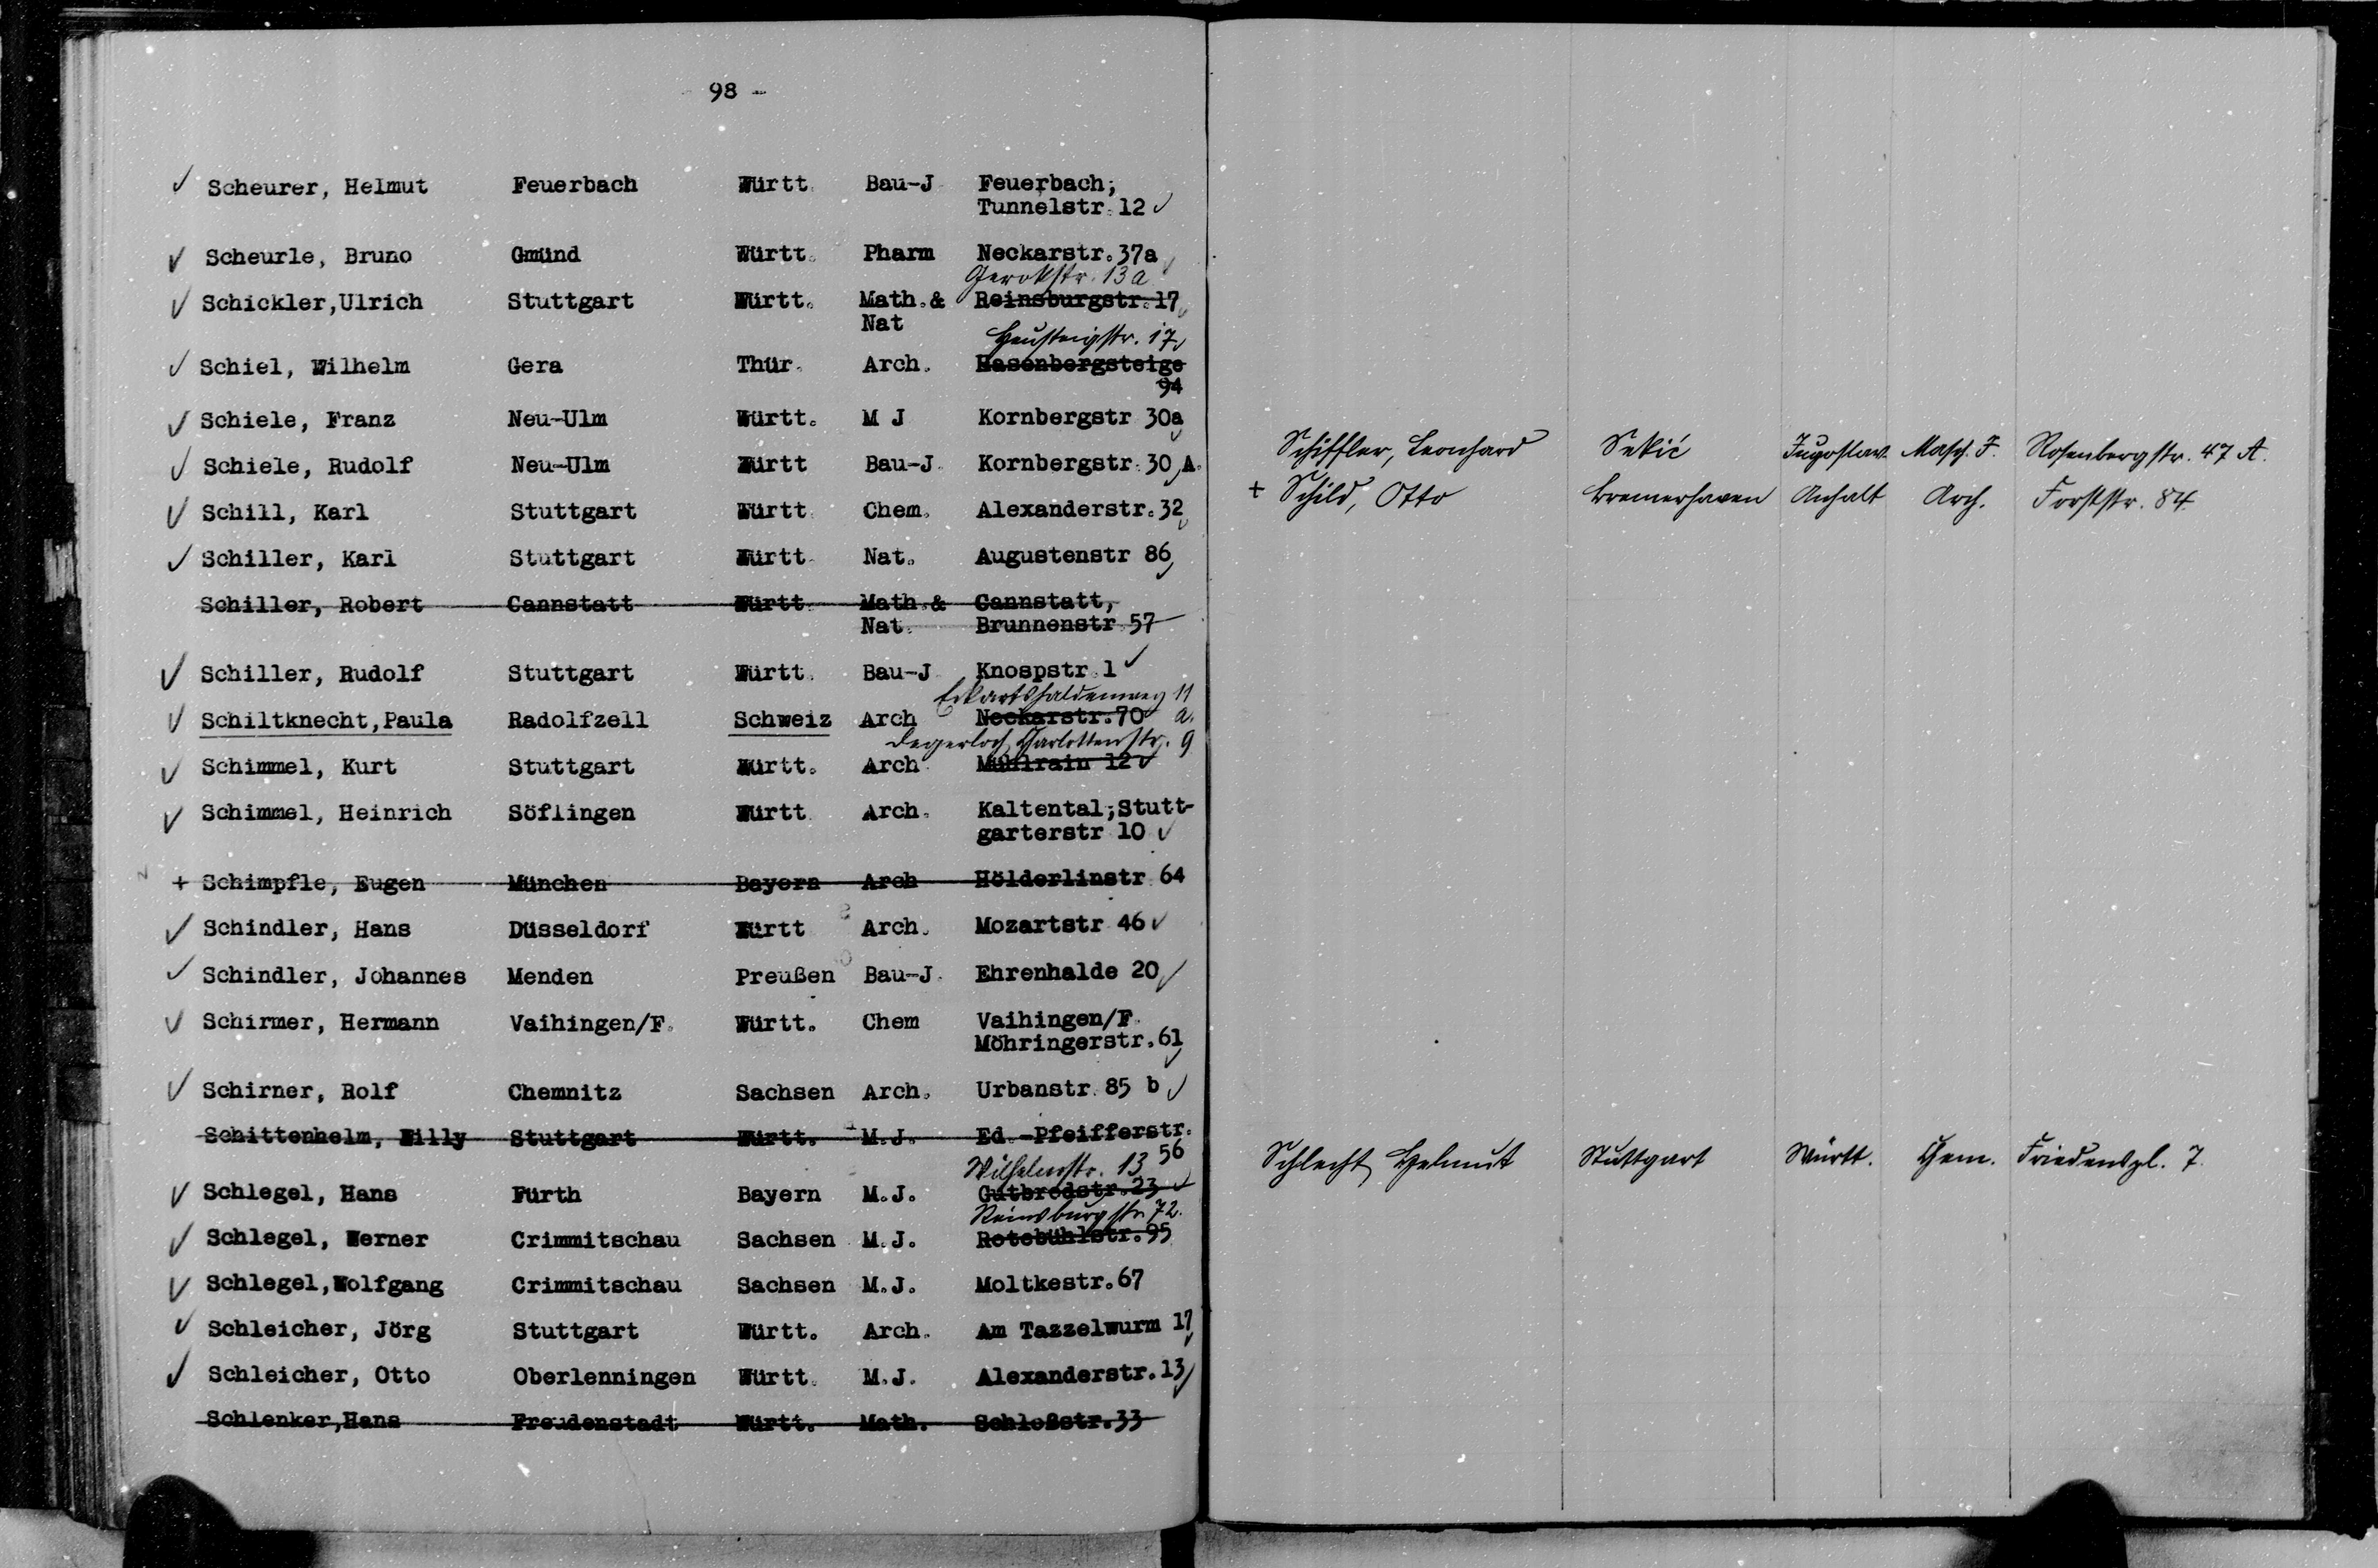 98 -
✓ Scheurer, Helmut Feuerbach Württ. Bau-J. Feuerbach;
Tunnelstr. 12 ✓
✓ Scheurle, Bruno Gmünd Württ. Pharm Neckarstr. 37a ✓
Gerokstr. 13a
✓ Schickler, Ulrich Stuttgart Württ. Math. & Reinsburgstr. 17 ✓
Nat
Heusteigstr. 17 ✓
✓ Schiel, Wilhelm Gera Thür. Arch. Hasenbergsteige
94
✓ Schiele, Franz Neu-Ulm Württ. M J Kornbergstr 30a ✓
✓ Schiele, Rudolf Neu-Ulm Württ Bau-J. Kornbergstr. 30 A. ✓
✓ Schill, Karl Stuttgart Württ Chem. Alexanderstr. 32 ✓
✓ Schiller, Karl Stuttgart Württ Nat. Augustenstr 86 ✓
Schiller, Robert Cannstatt Württ. Math. & Cannstatt,
Nat. Brunnenstr. 57
✓ Schiller, Rudolf Stuttgart Württ. Bau-J. Knospstr. 1 ✓
Eckartshaldenweg 11
✓ Schiltknecht, Paula Radolfzell Schweiz Arch Neckarstr. 70 a.
Degerloch, Charlottenstr. 9
✓ Schimmel, Kurt Stuttgart Württ. Arch. Mühlrain 12 ✓
✓ Schimmel, Heinrich Söflingen Württ. Arch. Kaltental; Stutt-
garterstr 10 ✓
+ Schimpfle, Eugen München Bayern Arch Hölderlinstr. 64
✓ Schindler, Hans Düsseldorf Württ Arch. Mozartstr 46 ✓
✓ Schindler, Johannes Menden Preußen Bau-J. Ehrenhalde 20 ✓
✓ Schirmer, Hermann Vaihingen/F. Württ. Chem Vaihingen/F.
Möhringerstr. 61 ✓
✓ Schirner, Rolf Chemnitz Sachsen Arch. Urbanstr. 85 b ✓
Schittenhelm, Willy Stuttgart Württ. M.J. Ed.-Pfeifferstr.
56
Wilhelmstr. 13
✓ Schlegel, Hans Fürth Bayern M.J. Gutbrodstr. 23 ✓
Reinsburgstr. 72.
✓ Schlegel, Werner Crimmitschau Sachsen M.J. Rotebühlstr. 95
✓ Schlegel, Wolfgang Crimmitschau Sachsen M.J. Moltkestr. 67
✓ Schleicher, Jörg Stuttgart Württ. Arch. Am Tazzelwurm 17 ✓
✓ Schleicher, Otto Oberlenningen Württ. M.J. Alexanderstr. 13 ✓
Schlenker, Hans Freudenstadt Württ. Math. Schloßstr. 33
Schiffler, Leonhard Sekić Jugoslaw. Masch. J. Rosenbergstr. 47 A.
+ Schild, Otto Bremerhaven Anhalt Arch. Forststr. 84.
Schlecht, Helmut Stuttgart Württ. Chem. Friedenspl. 7.